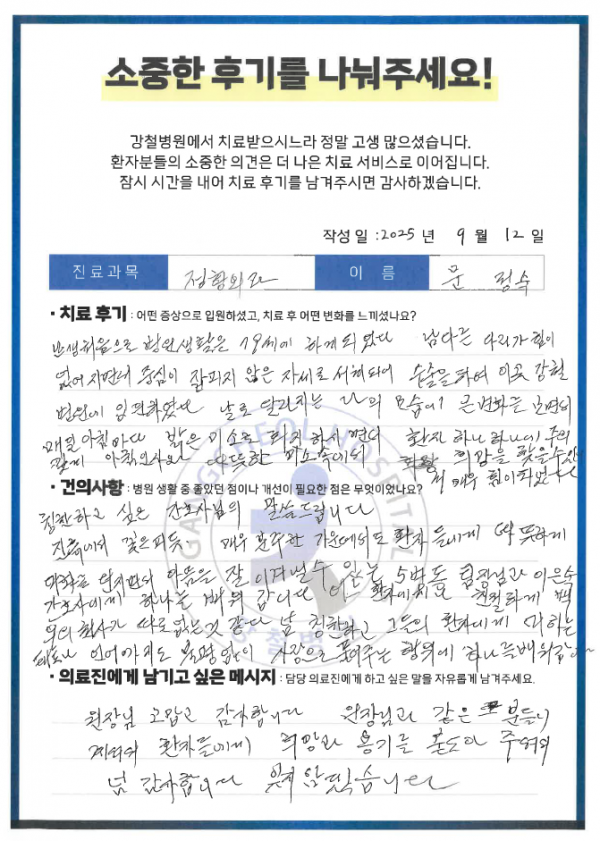 소중한 후기를 나눠주세요!
강철병원에서 치료받으시느라 정말 고생 많으셨습니다.
환자분들의 소중한 의견은 더 나은 치료 서비스로 이어집니다.
잠시 시간을 내어 치료 후기를 남겨주시면 감사하겠습니다.
작성일 : 2025 년 9 월 12 일
진료과목 정형외과 이 름 문 정숙
· 치료 후기 : 어떤 증상으로 입원하셨고, 치료 후 어떤 변화를 느끼셨나요?
난생처음으로 병원생활은 79세에 하게 되었다 남다른 다리가 힘이
없어지면서 중심이 잡히지 않은 자세로 서게되어 수술을 하여 이곳 강철
병원에 입원하였다 날로 달라지는 나의 모습에서 큰 변화는
매일 아침마다 밝은 미소로 회진하시면서 환자 하나하나에 주의
깊게 아침인사와 따뜻한 미소속에서 희망을 찾을수있
어 매우 힘이되었다
· 건의사항 : 병원 생활 중 좋았던 점이나 개선이 필요한 점은 무엇이었나요?
칭찬하고 싶은 간호사님의 말씀드립니다
진흙에서 꽃은피듯 매우 분주한 가운데서도 환자들에게 따뜻하게
마음을 잘 이겨낼수 있는 5병동 팀장님과 이은숙
간호사에게 하나를 배워 갑니다 환자에게 친절하게
의 천사가 따로없는것 같다 날 칭찬하고 그들의 환자에게 대하는
태도나 언어까지도 불평없이 사랑으로 품어주는 행위에 하나 더 배워갑니다
· 의료진에게 남기고 싶은 메시지 : 담당 의료진에게 하고 싶은 말을 자유롭게 남겨주세요.
원장님 고맙고 감사합니다 원장님과 같은 분들이
계셔서 환자들에게 희망과 용기를 북돋아 주어서
넘 감사합니다 잊지 않겠습니다